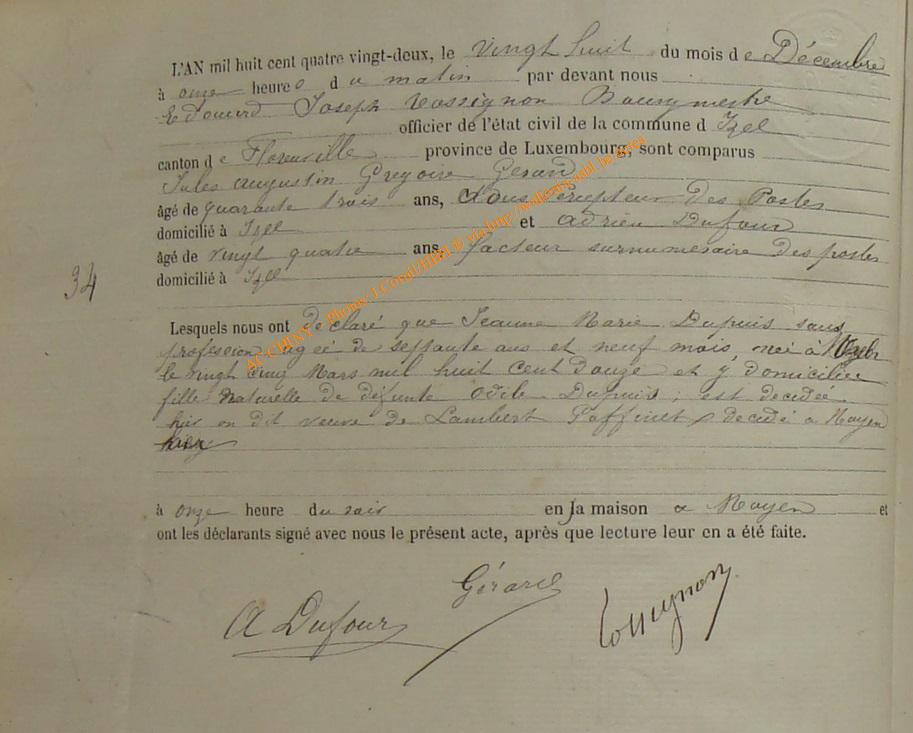 L'AN mil huit cent quatre vingt-deux, le vingt huit du mois de Décembre
à onze heure d u matin par devant nous
Edouard Joseph Rossignon Bourgmestre
officier de l'état civil de la commune d Izel
canton d e Florenville province de Luxembourg, sont comparus
Jules Augustin Grégoire Gérard
âgé de quarante trois ans, Sous Percepteur Des Postes
domicilié à Izel et Adrien Dufour
âgé de vingt quatre ans facteur surnumeraire des postes
domicilié à Izel
34
Lesquels nous ont declaré que Jeanne Marie Dupuis sans
profession agée de septante ans et neuf mois, née à
le vingt cinq Mars mil huit cent douze et y domiciliée
fille naturelle de défunte Odile Dupuis ; est decedée
hier on dit veuve de Lambert decedé a Moyen
à onze heure du soir en la maison a Moyen et
ont les déclarants signé avec nous le présent acte, après que lecture leur en a été faite.
Gérard
A Dufour
Rossignon